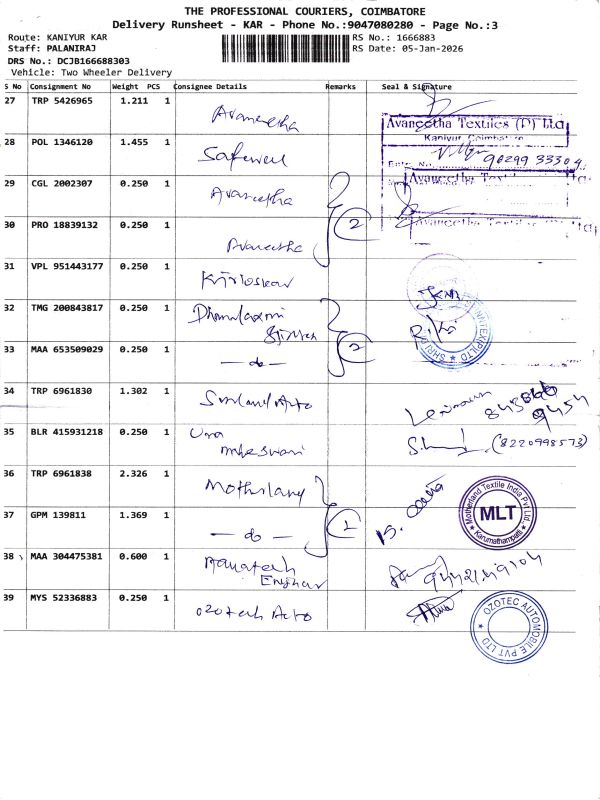 THE PROFESSIONAL COURIERS, COIMBATORE
Delivery Runsheet - KAR - Phone No.:9047080280 - Page No.:3
Route: KANIYUR KAR
RS No.: 1666883
Staff: PALANIRAJ
RS Date: 05-Jan-2026
DRS No.: DCJB166688303
Vehicle: Two Wheeler Delivery
S No Consignment No Weight PCS Consignee Details Remarks Seal & Signature
27 TRP 5426965 1.211 1 Avaneetha
Avaneetha Textiles (P) Ltd
Kaniyur, Coimbatore
28 POL 1346120 1.455 1 Safewell
90299 33304
29 CGL 2002307 0.250 1 Avaneetha
Avaneetha
30 PRO 18839132 0.250 1 Avaneetha 2
Avaneetha Textiles (P) Ltd
31 VPL 951443177 0.250 1 Kirloskar
32 TMG 200843817 0.250 1 Dhanalaxmi
33 MAA 653509029 0.250 1 — do — 2
34 TRP 6961830 1.302 1 Auto
35 BLR 415931218 0.250 1 Uma
maheswari
(8220998573)
36 TRP 6961838 2.326 1 Motherland
Motherland Textile India Pvt Ltd.
MLT
Karumathampatti
37 GPM 139811 1.369 1 — do —
38 MAA 304475381 0.600 1
39 MYS 52336883 0.250 1 Ozotech Auto
OZOTEC AUTOMOBILE PVT LTD